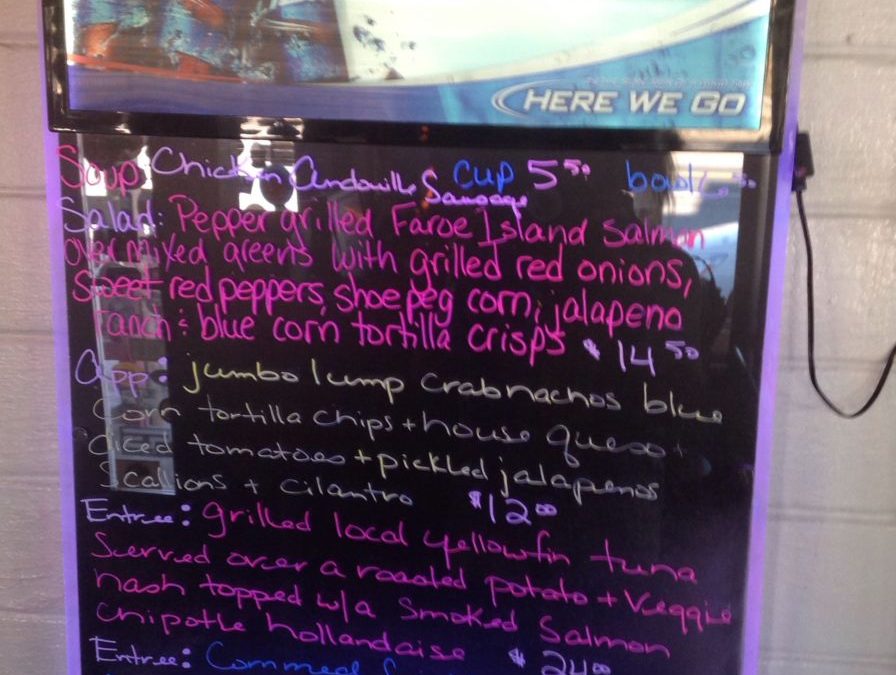 HERE WE GO
Soup: Chicken Andouille Sausage Cup 5.50 bowl
Salad: Pepper grilled Faroe Island Salmon
over mixed greens with grilled red onions,
Sweet red peppers, shoepeg corn, jalapeno
ranch & blue corn tortilla crisps $14.50
App: jumbo lump crab nachos blue
Corn tortilla chips + house queso +
diced tomatoes + pickled jalapenos
Scallions + cilantro $12.00
Entree: grilled local yellowfin tuna
Served over a roasted potato + Veggie
hash topped w/a Smoked Salmon
chipotle hollandaise $24.00
Entree: Cornmeal